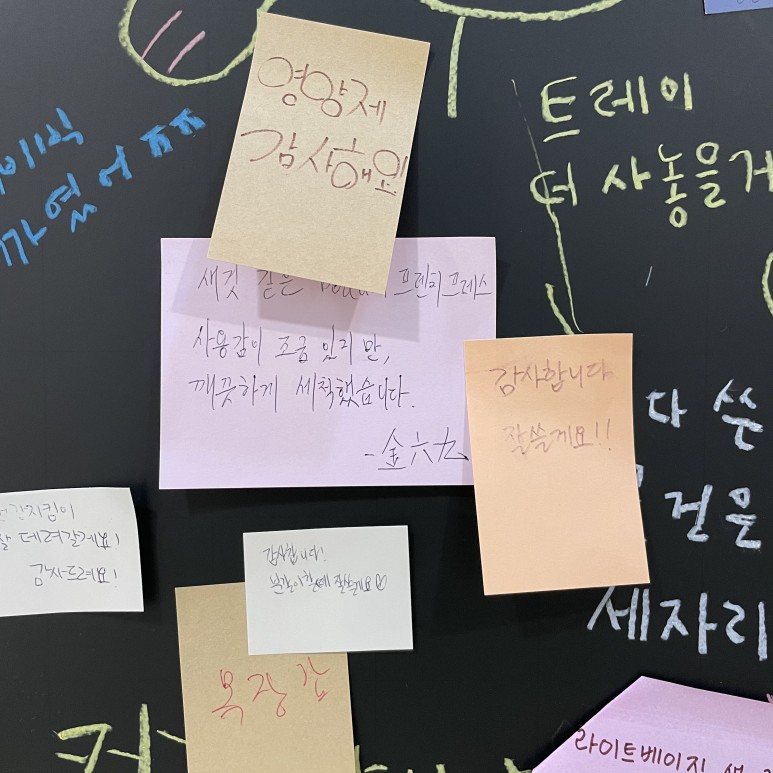 영양제
감사해요!
트레이
더 사놓을게
새것 같은 프렌치프레스
사용감이 조금 있지만,
깨끗하게 세척했습니다.
-金六九
감사합니다
잘쓸게요!!
다 쓴
건은
세자리
잘 데려갈게요!
감사드려요!
감사합니다!
잘쓸게요♡
목장갑
라이트베이지